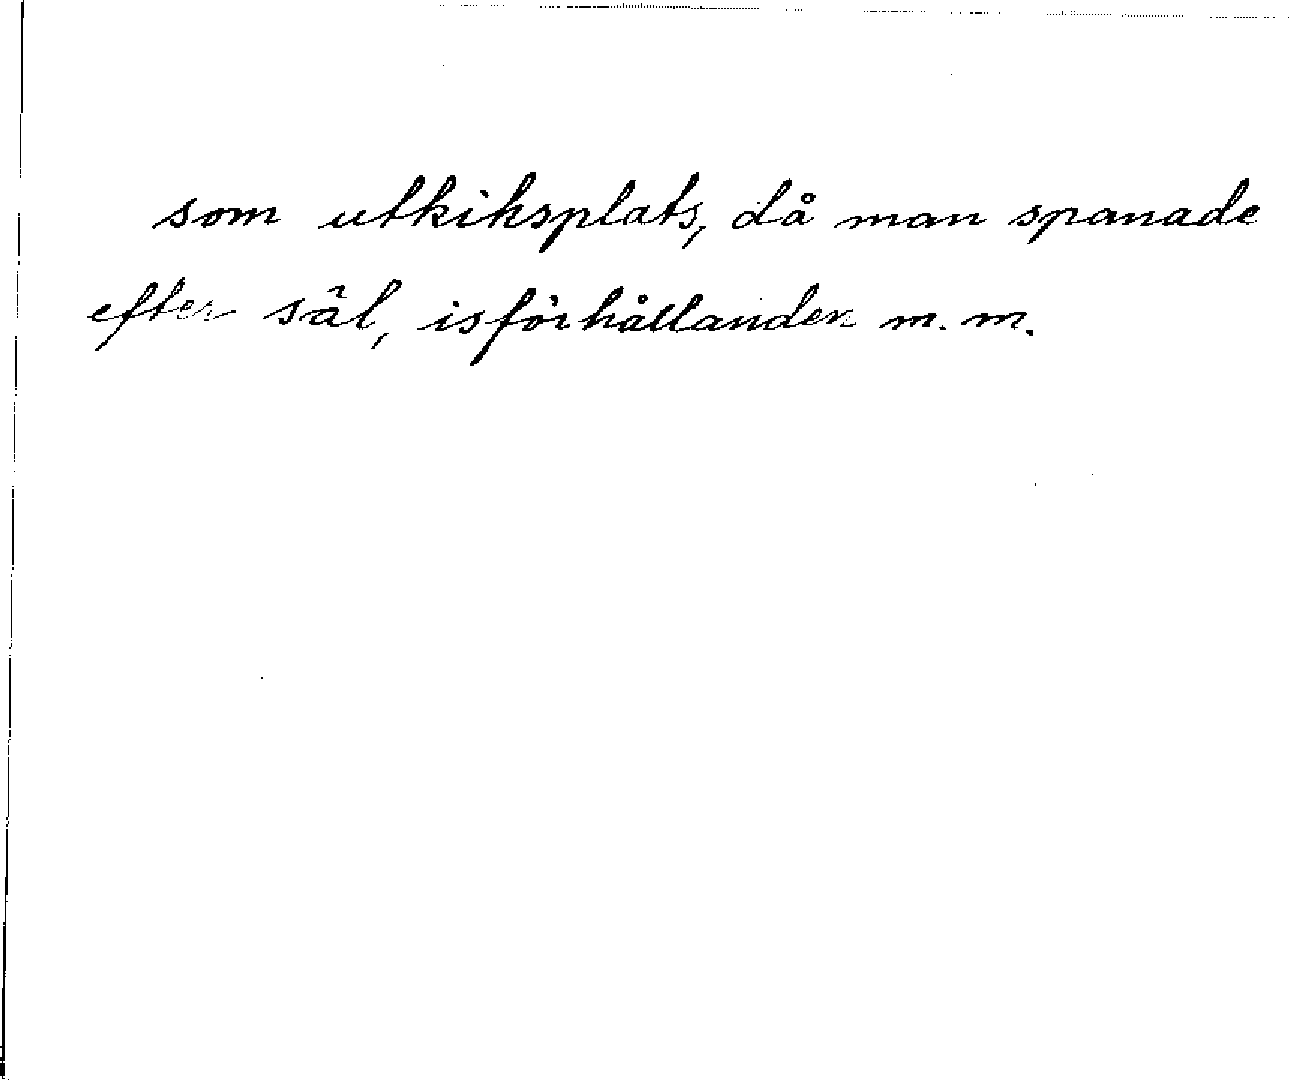 som utkiksplats, då man spanade
efter säl, isförhållanden m.m.